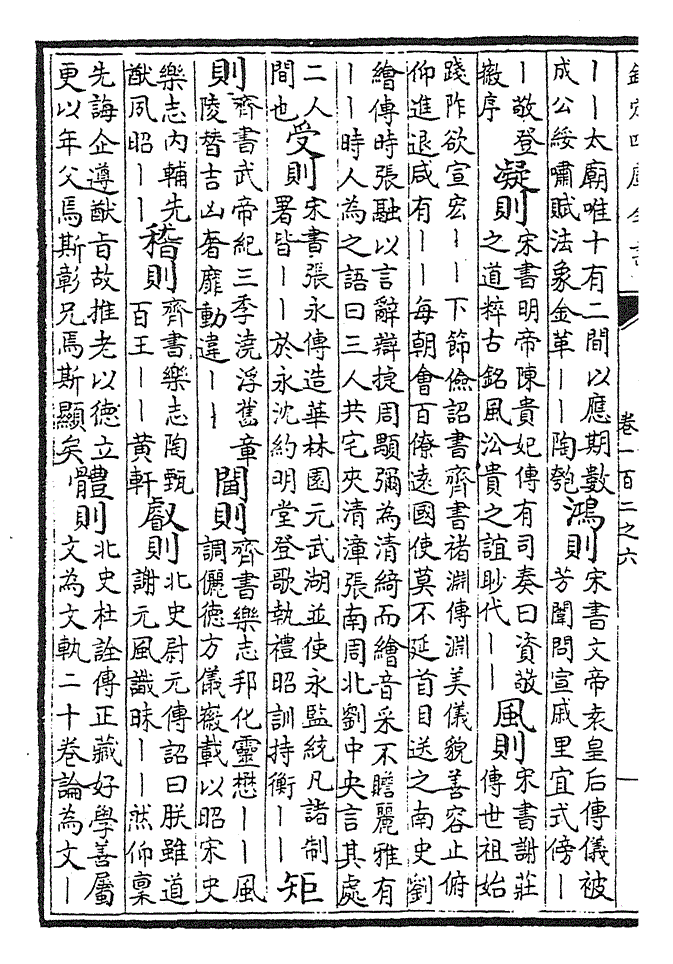 欽定四庫全書
卷一百二之六
丨丨太廟唯十有二間以應期數
成公綏嘯賦法象金革丨丨陶匏
鴻則
宋書文帝袁皇后傳儀被
芳闈問宣戚里宜式傍丨
丨敬登
徽序
凝則
宋書明帝陳貴妃傳有司奏曰資敬
之道粹古銘風沿貴之誼眇代丨丨
風則
宋書謝莊
傳世祖始
踐阼欲宣宏丨丨下節儉詔書齊書褚淵傳淵美儀貌善容止俯
仰進退咸有丨丨每朝會百僚遠國使莫不延首目送之南史劉
繪傳時張融以言辭辯捷周顒彌為清綺而繪音采不贍麗雅有
丨丨時人為之語曰三人共宅夾清漳張南周北劉中央言其處
二人
間也
受則
宋書張永傳造華林園元武湖並使永監統凡諸制
署皆丨丨於永沈約明堂登歌執禮昭訓持衡丨丨
矩
則
齊書武帝紀三季澆浮舊章
陵替吉凶奢靡動違丨丨
閫則
齊書樂志邦化靈懋丨丨風
調儷德方儀徽載以昭宋史
樂志内輔先
猷夙昭丨丨
稽則
齊書樂志陶甄
百王丨丨黄軒
叡則
北史尉元傳詔曰朕雖道
謝元風識昧丨丨然仰禀
先誨企遵猷旨故推老以德立
更以年父焉斯彰兄焉斯顯矣
體則
北史杜詮傳正藏好學善屬
文為文軌二十卷論為文丨